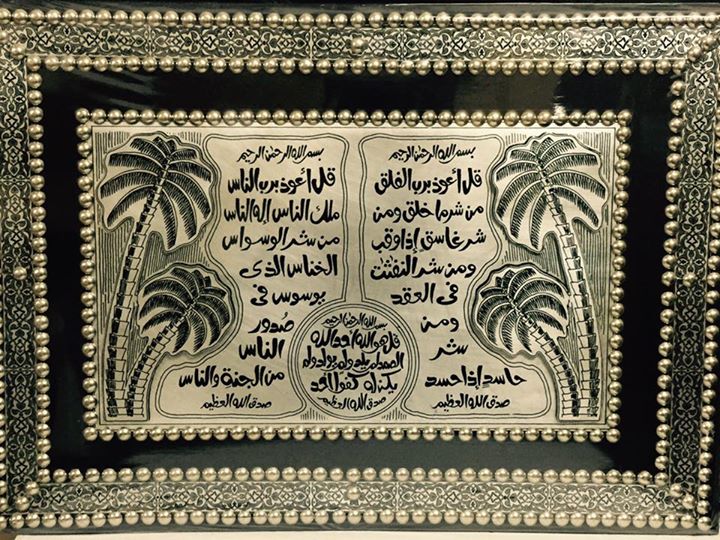 بسم الله الرحمن الرحيم
قل أعوذ برب الفلق
من شر ما خلق ومن
شر غاسق إذا وقب
ومن شر النفثت
فى العقد
ومن
شر
حاسد إذا حسد
صدق الله العظيم
بسم الله الرحمن الرحيم
قل أعوذ برب الناس
ملك الناس إله الناس
من شر الوسواس
الخناس الذى
يوسوس فى
صدور
الناس
من الجنة والناس
صدق الله العظيم
بسم الله الرحمن الرحيم
قل هو الله أحد الله
الصمد لم يلد ولم يولد ولم
يكن له كفوا أحد
صدق الله العظيم